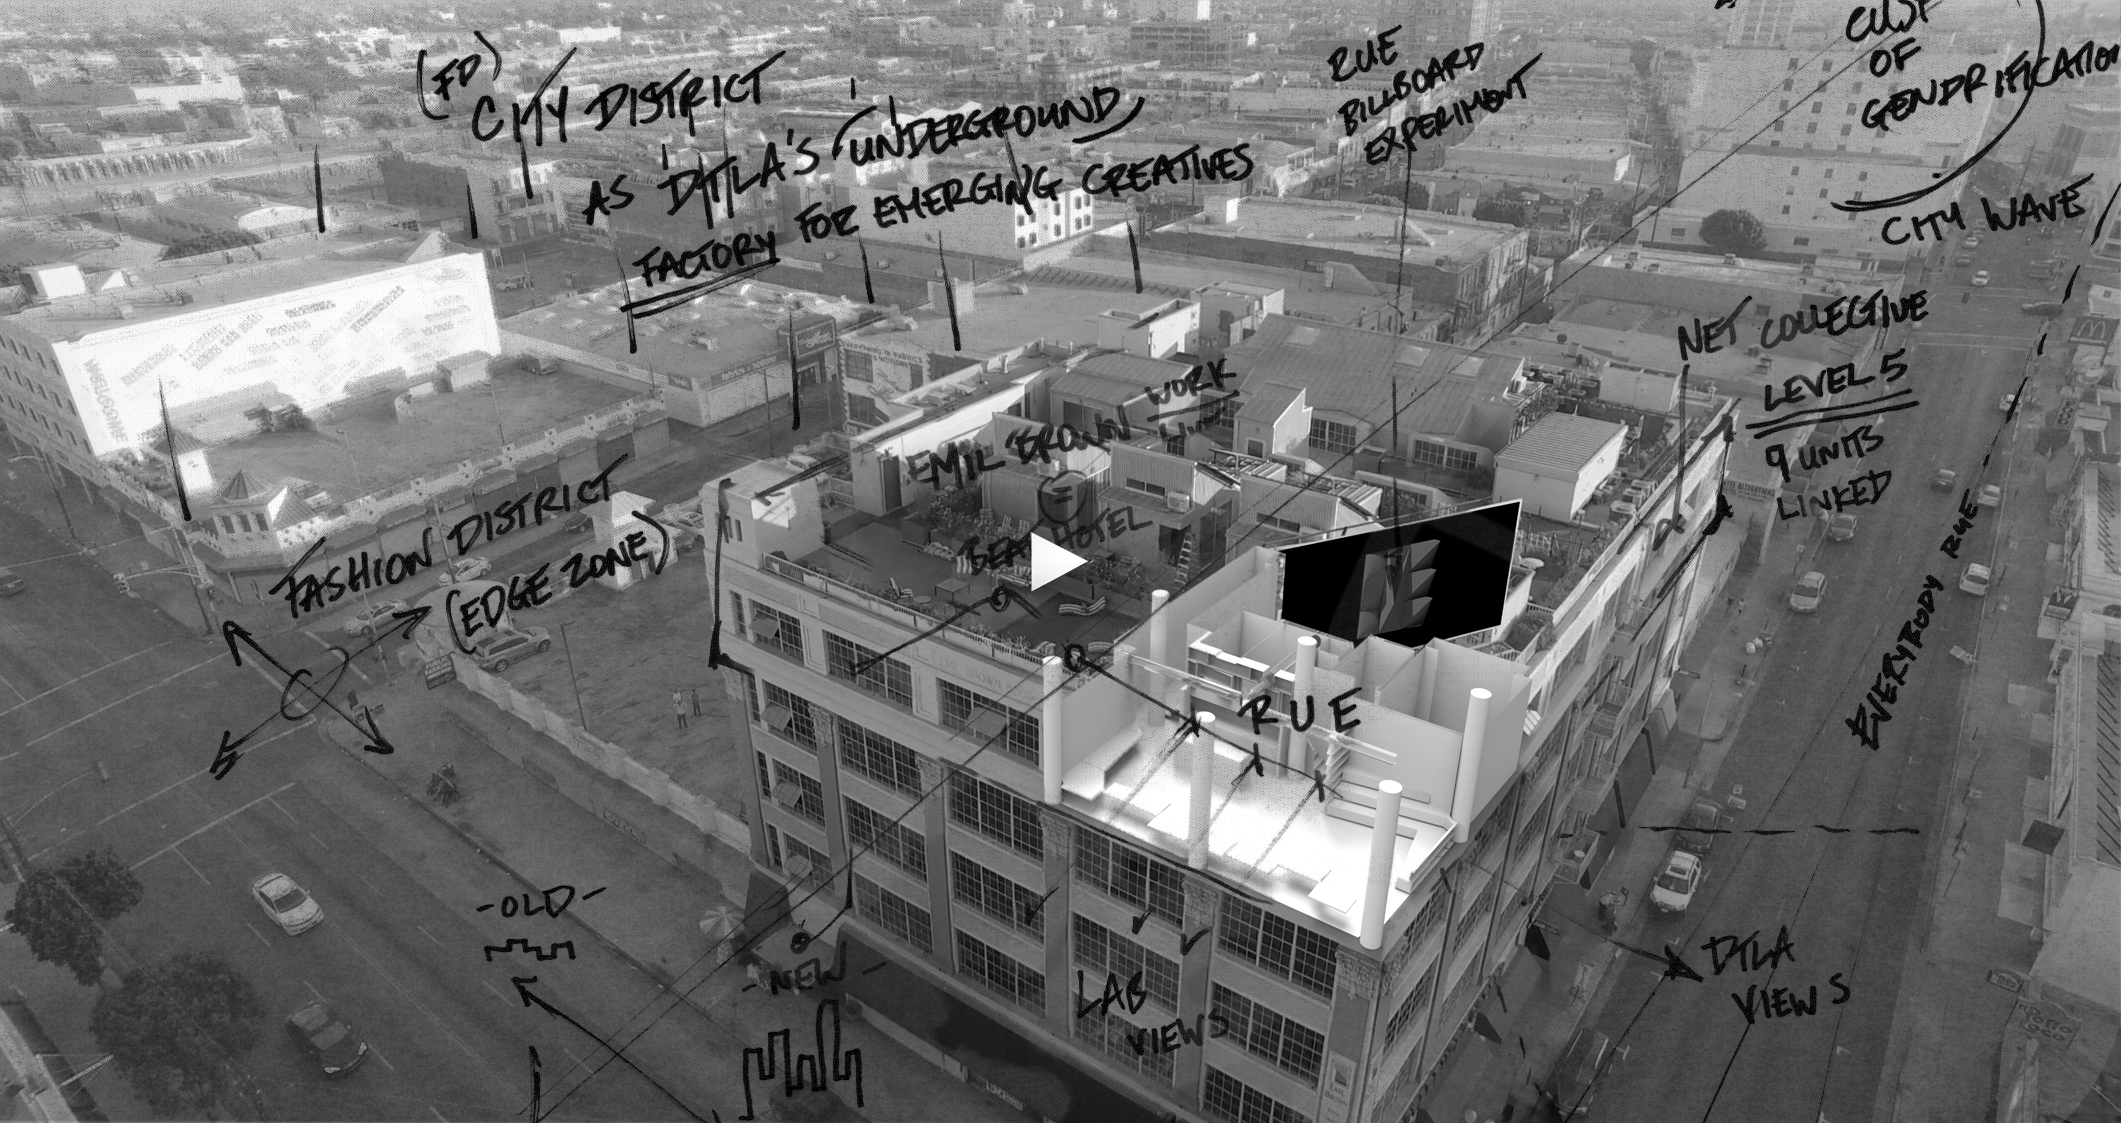 (FD)
CITY DISTRICT
AS DTLA'S UNDERGROUND
FACTORY FOR EMERGING CREATIVES
RUE
BILLBOARD
EXPERIMENT
OF
GENDRIFICATION
CITY WAVE
NET COLLECTIVE
LEVEL 5
9 UNITS
LINKED
EMIL BROWN WORK
=
HOTEL
FASHION DISTRICT
(EDGE ZONE)
EVERYBODY RUE
RUE
-OLD-
-NEW-
LAB
VIEWS
DTLA
VIEWS